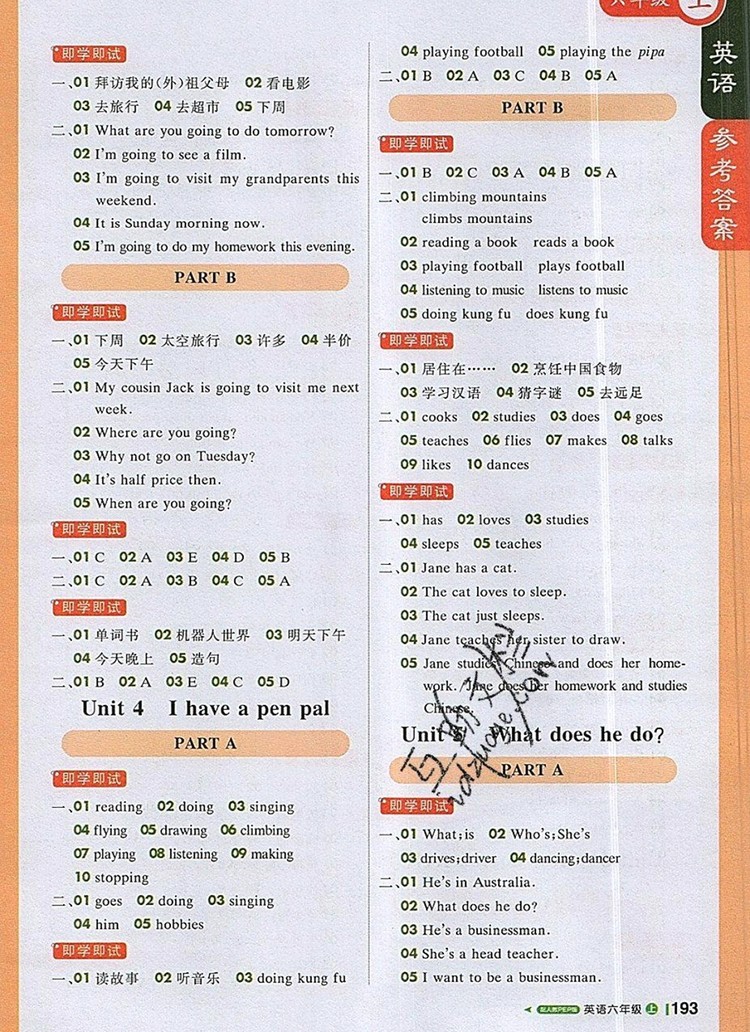 六年级 上
英语
参考答案
即学即试
一、01 拜访我的(外)祖父母 02 看电影
03 去旅行 04 去超市 05 下周
二、01 What are you going to do tomorrow?
02 I'm going to see a film.
03 I'm going to visit my grandparents this
weekend.
04 It is Sunday morning now.
05 I'm going to do my homework this evening.
PART B
即学即试
一、01 下周 02 太空旅行 03 许多 04 半价
05 今天下午
二、01 My cousin Jack is going to visit me next
week.
02 Where are you going?
03 Why not go on Tuesday?
04 It's half price then.
05 When are you going?
即学即试
一、01 C 02 A 03 E 04 D 05 B
二、01 C 02 A 03 B 04 C 05 A
即学即试
一、01 单词书 02 机器人世界 03 明天下午
04 今天晚上 05 造句
二、01 B 02 A 03 E 04 C 05 D
Unit 4 I have a pen pal
PART A
即学即试
一、01 reading 02 doing 03 singing
04 flying 05 drawing 06 climbing
07 playing 08 listening 09 making
10 stopping
二、01 goes 02 doing 03 singing
04 him 05 hobbies
即学即试
一、01 读故事 02 听音乐 03 doing kung fu
04 playing football 05 playing the pipa
二、01 B 02 A 03 C 04 B 05 A
PART B
即学即试
一、01 B 02 C 03 A 04 B 05 A
二、01 climbing mountains
climbs mountains
02 reading a book reads a book
03 playing football plays football
04 listening to music listens to music
05 doing kung fu does kung fu
即学即试
一、01 居住在…… 02 烹饪中国食物
03 学习汉语 04 猜字谜 05 去远足
二、01 cooks 02 studies 03 does 04 goes
05 teaches 06 flies 07 makes 08 talks
09 likes 10 dances
即学即试
一、01 has 02 loves 03 studies
04 sleeps 05 teaches
二、01 Jane has a cat.
02 The cat loves to sleep.
03 The cat just sleeps.
04 Jane teaches her sister to draw.
05 Jane studies Chinese and does her home-
work. / Jane does her homework and studies
Chinese.
Unit 5 What does he do?
PART A
即学即试
一、01 What;is 02 Who's;She's
03 drives;driver 04 dancing;dancer
二、01 He's in Australia.
02 What does he do?
03 He's a businessman.
04 She's a head teacher.
05 I want to be a businessman.
配人教PEP版 英语六年级 上 193